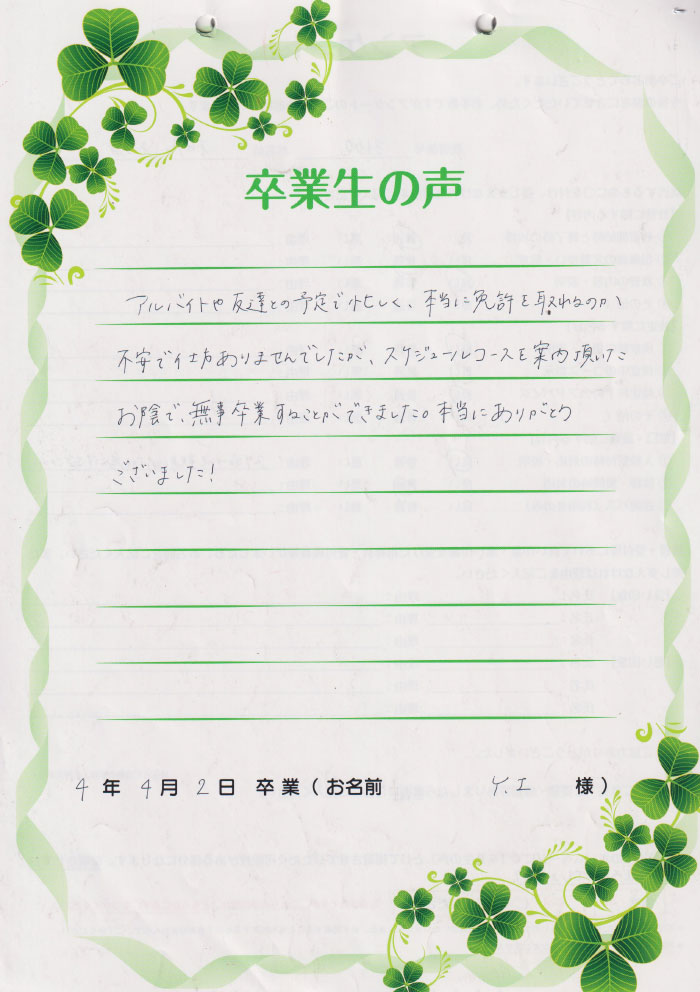 卒業生の声
アルバイトや友達との予定で忙しく、本当に免許を取れるのか
不安で仕方ありませんでしたが、スケジュールコースを案内頂いた
お陰で、無事卒業することができました。本当にありがとう
ございました!
4年4月2日 卒業(お名前 Y.I 様)